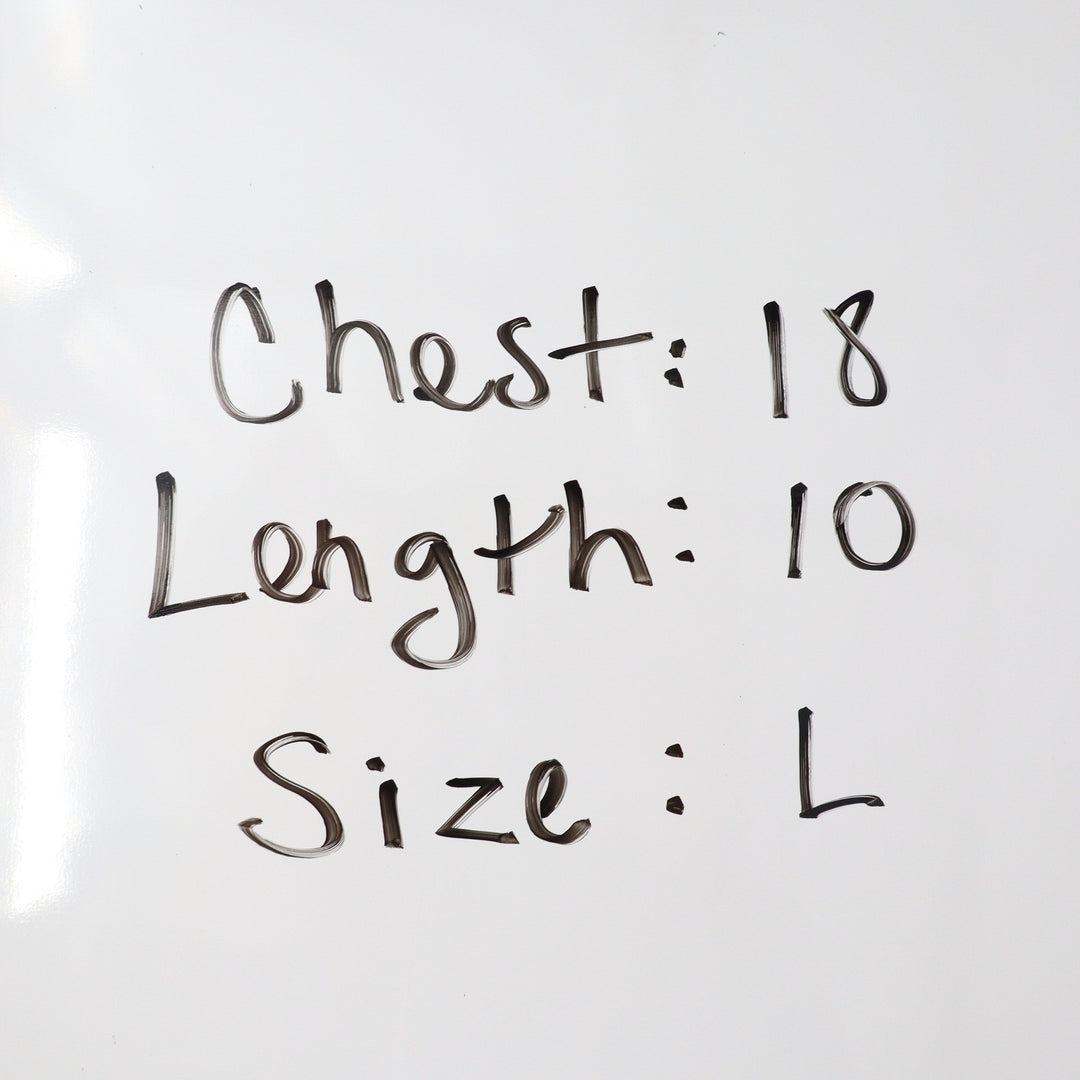 Chest: 18
Length: 10
Size: L